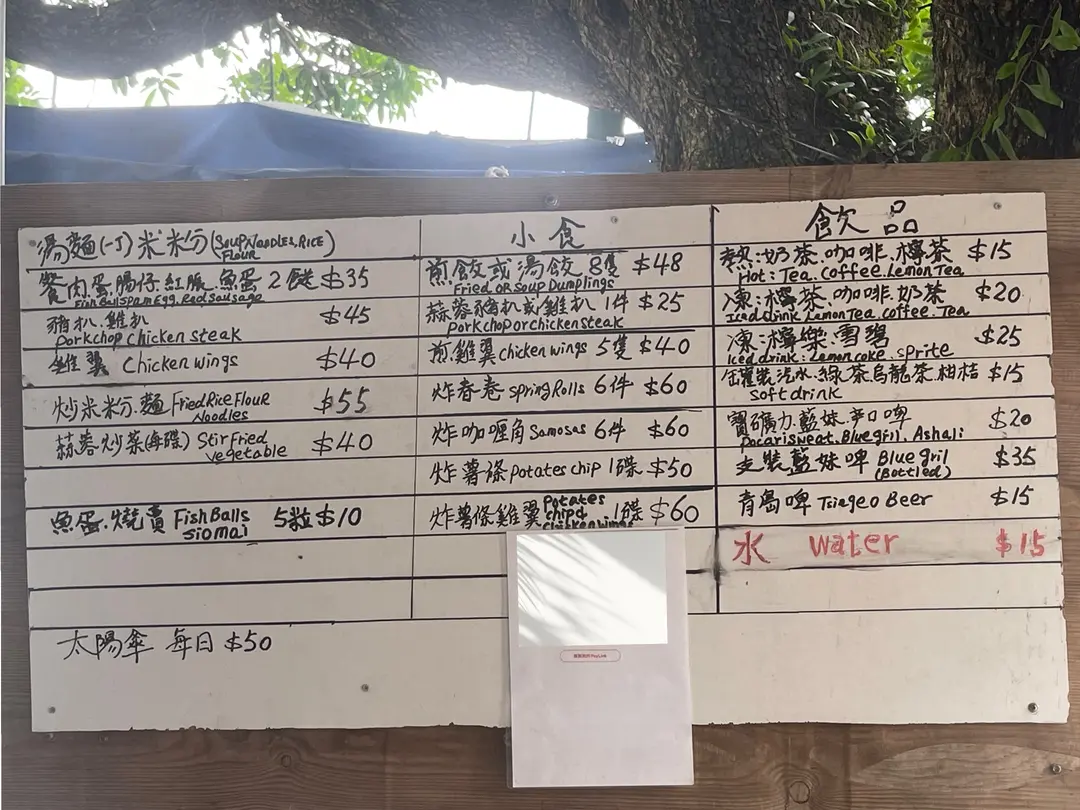 湯麵(一丁)米米粉(SOUP.NOODLES,RICE
FLOUR
餐肉蛋.腸仔.紅腸.魚蛋 2餸 $35
Fish Ball Spam Egg, Red Sausage
豬扒.雞扒 $45
Porkchop Chicken Steak
雞翼 Chicken Wings $40
炒米米粉.麵 Fried Rice Flour $55
Noodles
蒜蓉炒菜(每碟) Stir Fried $40
Vegetable
魚蛋.燒賣 Fish Balls 5粒 $10
Siomai
太陽傘 每日 $50
小食
煎餃或湯餃 8隻 $48
Fried OR Soup Dumplings
蒜蓉豬扒或雞扒 1件 $25
Porkchop or chicken steak
煎.雞翼 chicken wings 5隻 $40
炸春卷 Spring Rolls 6件 $60
炸咖喱角 Samosas 6件 $60
炸薯條 Potates chip 1碟 $50
炸薯條雞翼 Potates 1碟 $60
chip &
chicken wings
飲品
熱:奶茶.咖啡.檸茶 $15
Hot: Tea. Coffee. Lemon Tea
凍:檸茶.咖啡.奶茶 $20
Iced drink. Lemon Tea. Coffee. Tea
凍:檸樂.雪碧 $25
Iced drink: Lemon coke. Sprite
罐裝汽水.綠茶烏龍茶.柑桔 $15
Soft drink
寶礦力.藍妹.啤 $20
Pocari Sweat. Blue gril. Ashali
支裝藍妹啤 Blue gril $35
(Bottled)
青島啤 Tsiageo Beer $15
水 Water $15
PayLink